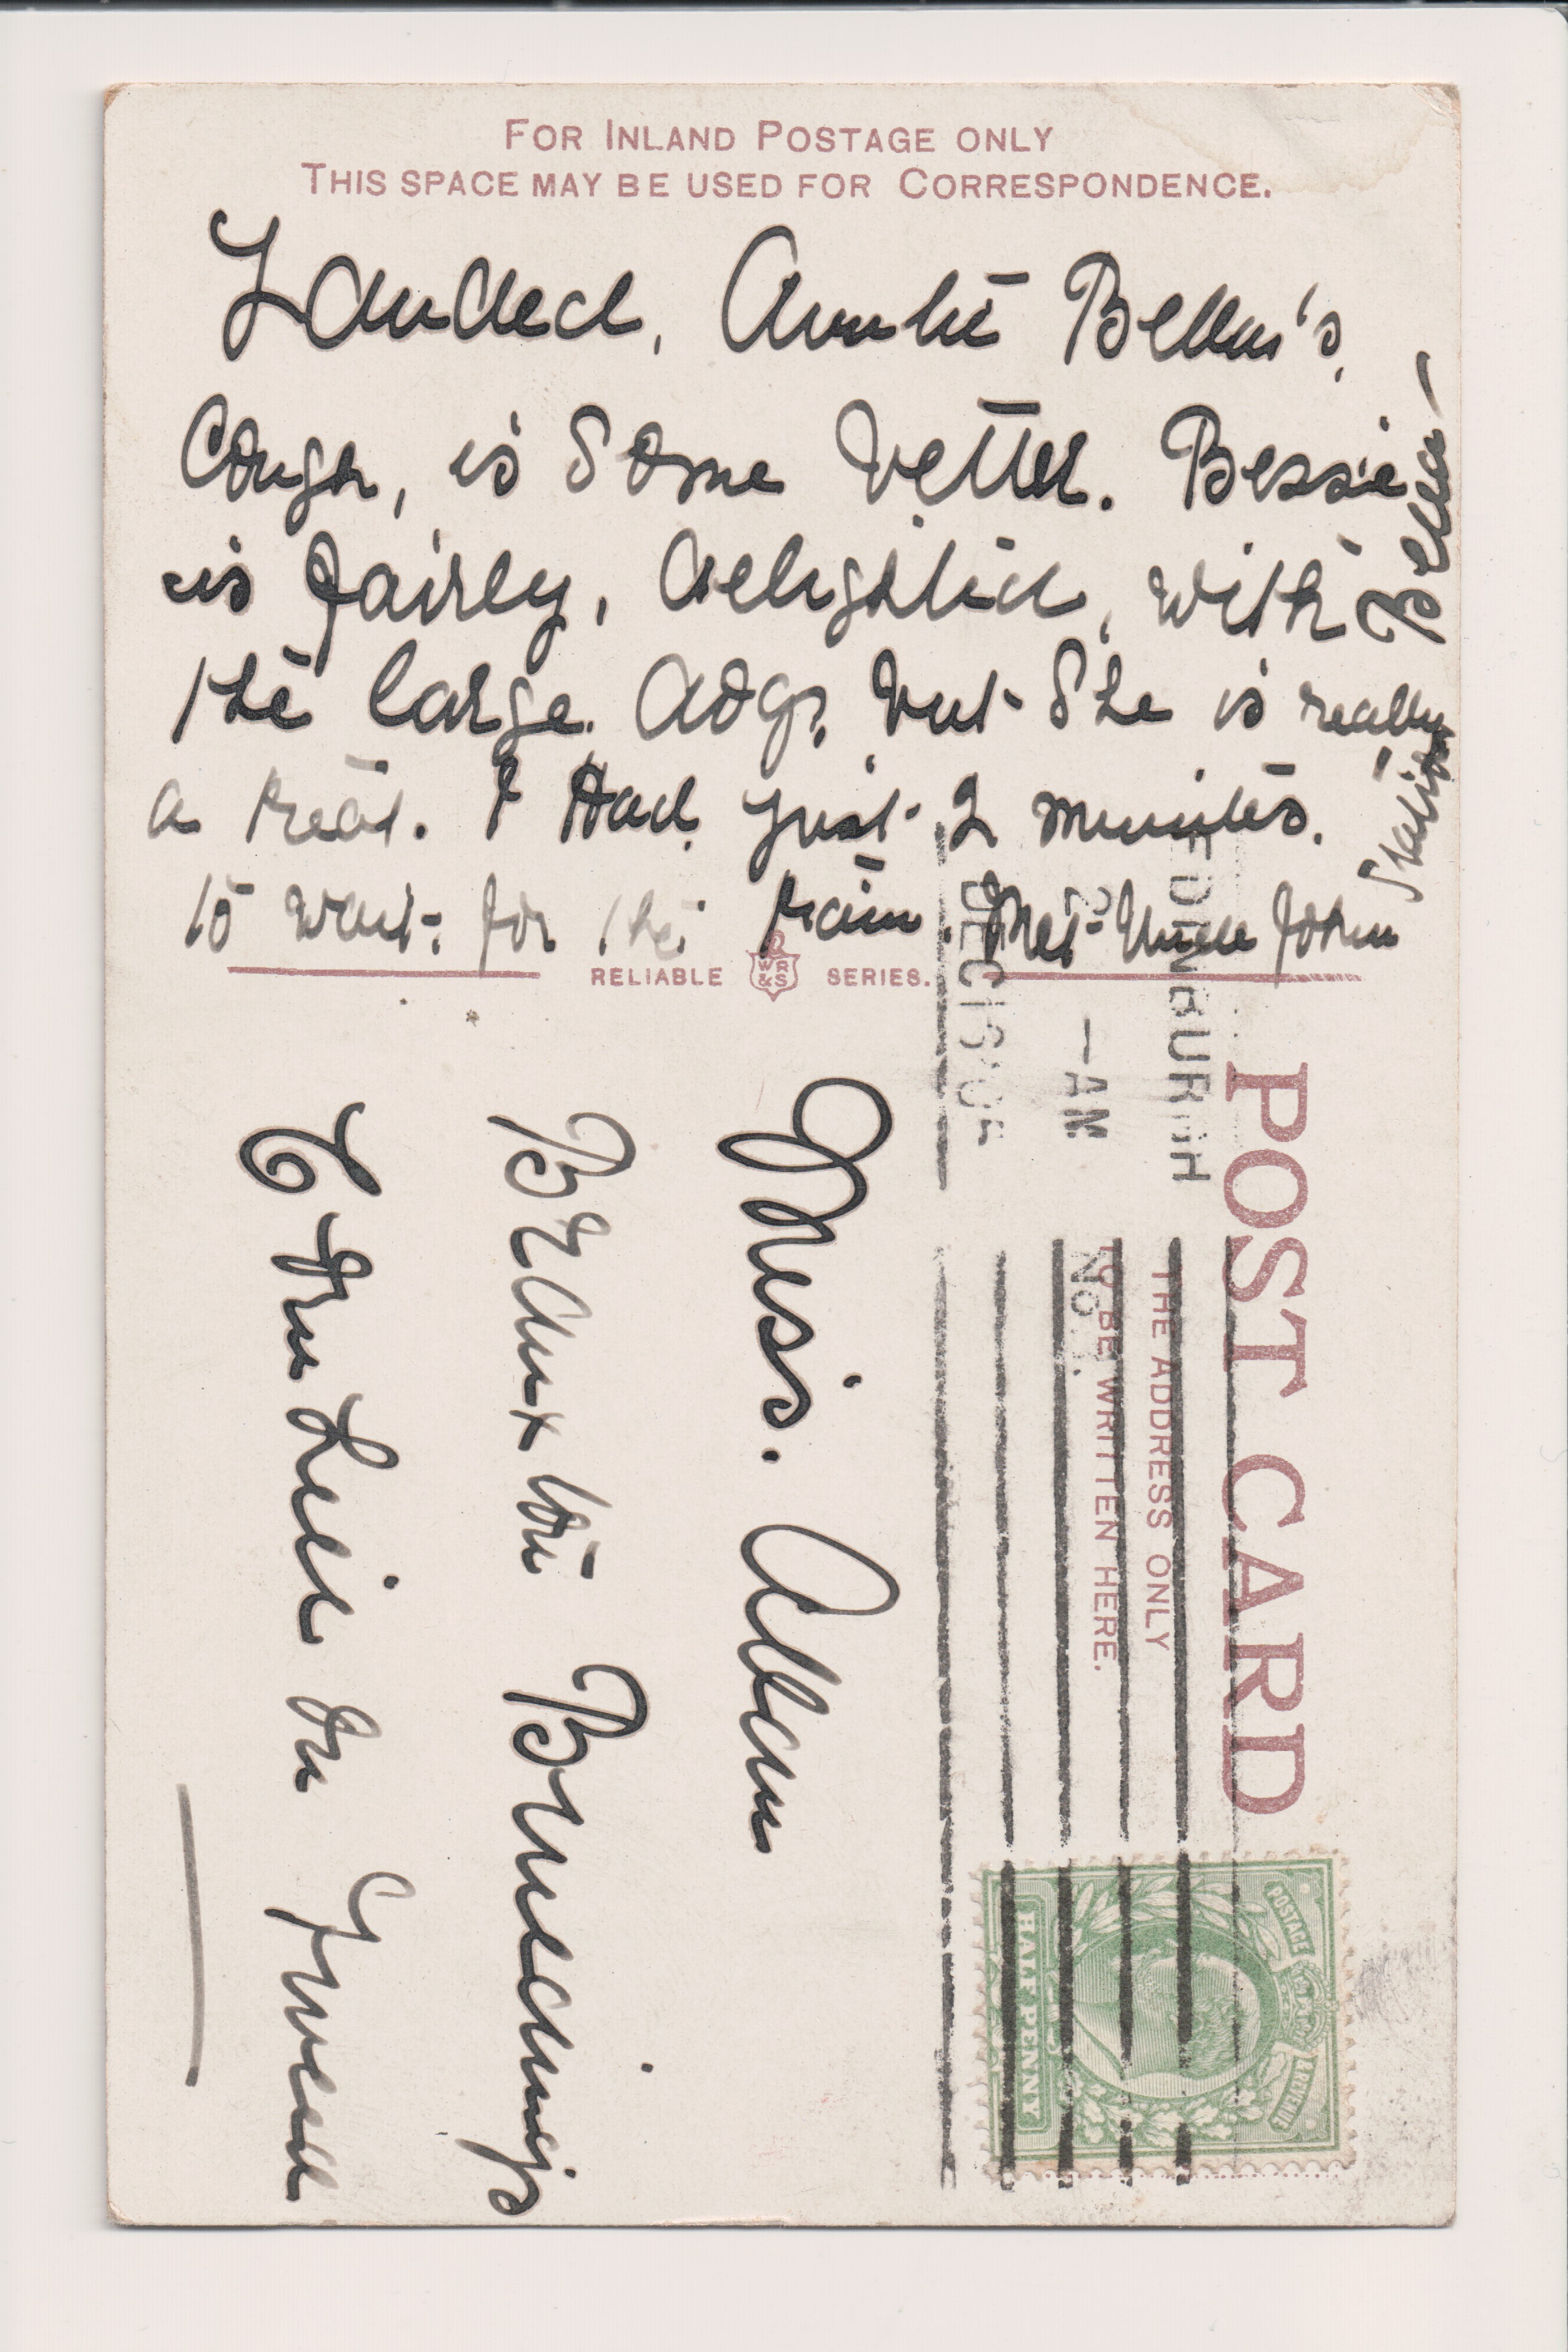 FOR INLAND POSTAGE ONLY
THIS SPACE MAY BE USED FOR CORRESPONDENCE.
Landed, Auntie Bella's,
Cough, is Some better. Bessie
is fairly, delighted, with
the large. dog, but She is really
a treat. I Had just 2 minutes.
to wait. for the train. Met Uncle John
Station
Bella
RELIABLE
WR
&S
SERIES.
POST CARD
THE ADDRESS ONLY
TO BE WRITTEN HERE.
EDINBURGH
2 - AM
DEC 13
No
POSTAGE
REVENUE
HALFPENNY
Miss. Adam
Branxton Buildings
Tweed